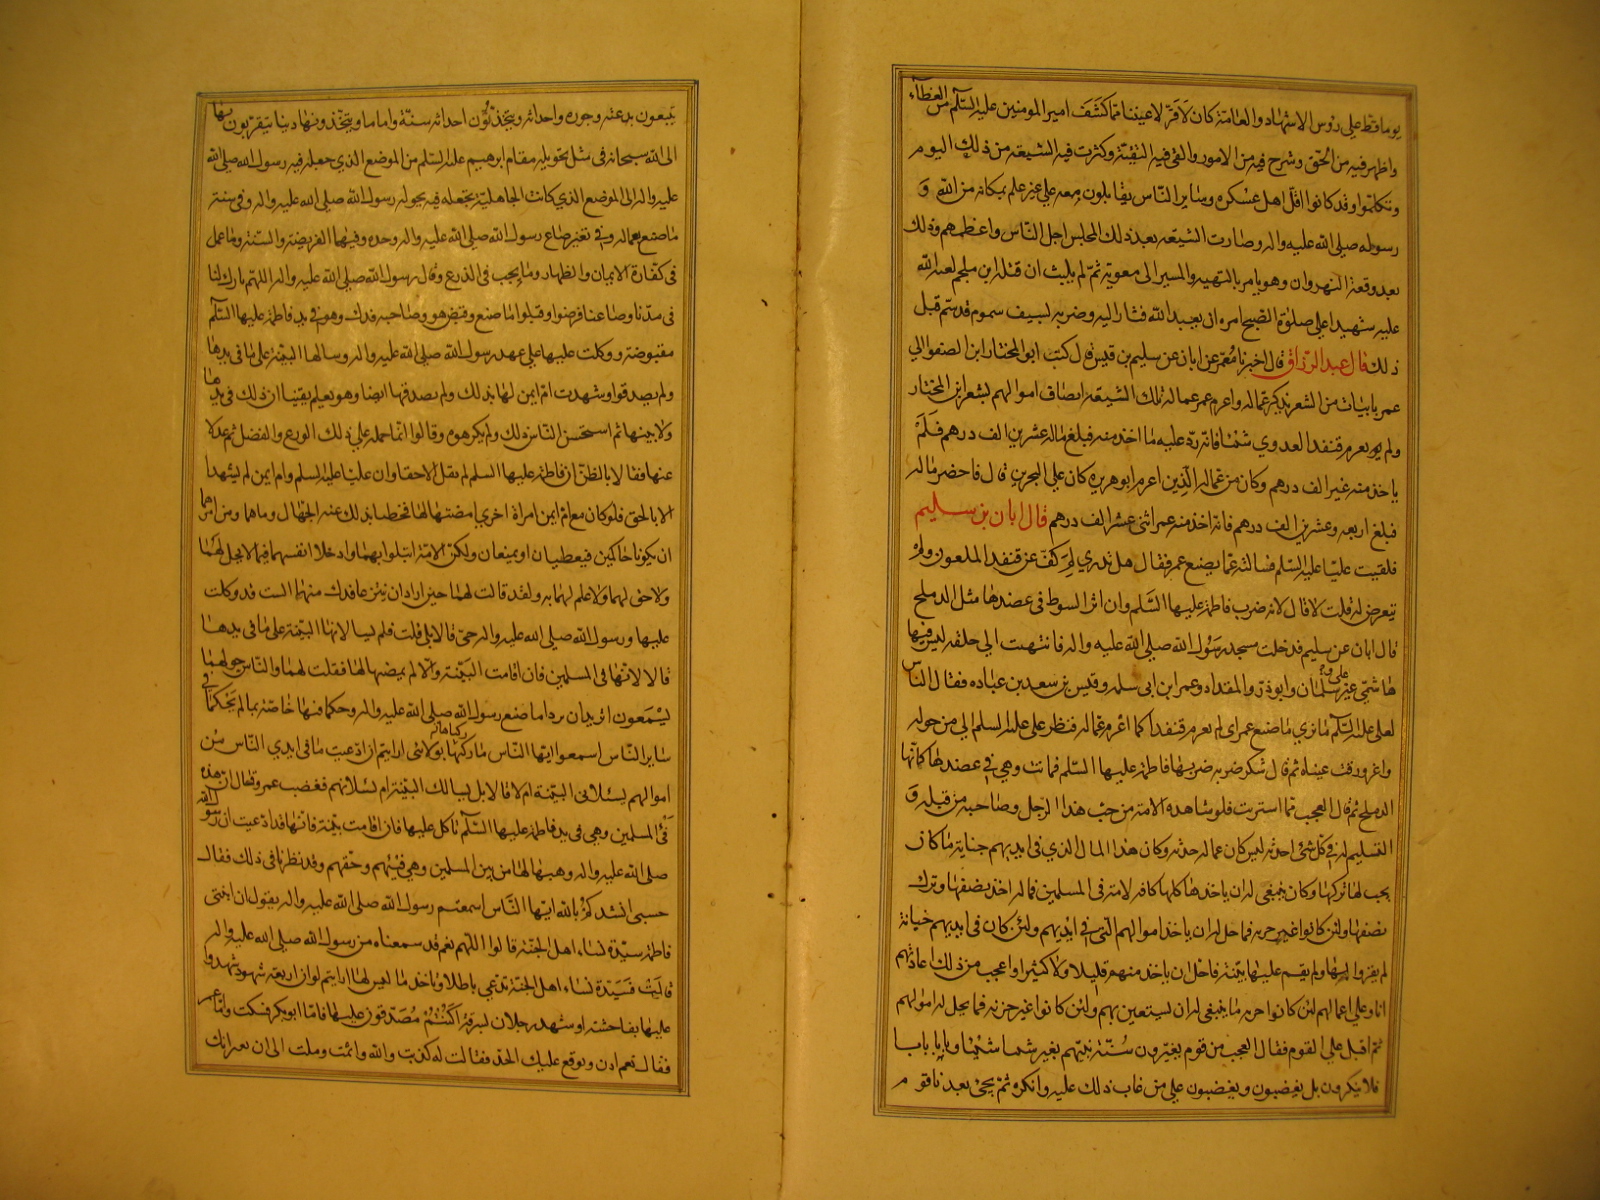 يوما قط على رؤس الاشهاد والعامة كان لاقر لاعيننا مما كشف امير المومنين عليه السلم من الغطاء
واظهر فيه من الحق وشرح فيه من الامور والقى فيه التقية وكثرت فيه الشيعة من ذلك اليوم
وتكلموا وقد كانوا اقل اهل عسكره وساير الناس يقاتلون معه على غير علم بمكانه من الله و
رسوله صلى الله عليه واله وصارت الشيعة بعد ذلك المجلس اجل الناس واعظمهم وذلك
بعد وقعة النهروان وهو يامر بالتهيه والمسير الى معوية ثم لم يلبث ان قتله ابن ملجم لعنه الله
عليه شهيدا على صلوة الصبح امره ان بعبد الله فثار اليه وضربه لسيف سموم قد ستم قبل
ذلك قال عبد الرزاق قال اخبرنا معمر عن ابان عن سليم بن قيس قال كتب ابو المختار ابن الصعق الى
عمر بابيات من الشعر يذكر عماله واعرم عمر عماله تلك الشيعة انصاف اموالهم بشعر ابن المختار
ولم يعرم قنفد العدوي شيئا فانه رد عليه ما اخذ منه فبلغ ماله عشرين الف درهم فلم
ياخذ منه غير الف درهم وكان من عماله الذين اعرم ابو هريره كان على البحرين قال فاحضر ماله
فبلغ اربعه وعشرين الف درهم فانه اخذ منه عمر اثنى عشر الف درهم قال ابان بن سليم
فلقيت عليا عليه السلم فسالته عما يصنع عمر فقال هل تدري لم كف عن قنفد الملعون ولم
يتعرض له قلت لا قال لانه ضرب فاطمة عليها السلم وان اثر السوط في عضدها مثل الدملج
قال ابان عن سليم فدخلت مسجد رسول الله صلى الله عليه واله فانتهت الى حلقه ليس فيها
هاشمي غير سلمان وابو ذر والمقداد وعمر ابن ابي سلمه وقيس بن سعد بن عباده فقال الناس
لعلي عليه السلم ما ترى ما صنع عمر اى لم يعرم قنفدا كما اعرم عماله فنظر على عليه السلم الى من حوله
واغرورقت عيناه ثم قال شكر ضربه ضربها فاطمة عليها السلم فماتت وهي في عضدها كانها
الدملج ثم قال العجب مما استربت قلوب هذه الامة من حب هذا الرجل وصاحبه من قبله و
التسليم له في كل شئ احدثه لئن كان عماله خونه وكان هذا المال الذي في ايديهم جناية ما كان
يجب لها تركها وكان ينبغي له ان ياخذها كلها كافه لامة في المسلمين فماله اخذ نصفها وترك
نصفها ولئن كانوا غير خونه فما حل له ان ياخذ اموالهم التي في ايديهم ولئن كان في ايديهم خيانة
لم يقروا بها ولم يقم عليها بينة فاحل ان ياخذ منهم قليلا ولا كثيرا واعجب من ذلك اعادتهم
اياه على اعمالهم لئن كانوا خونه ما ينبغي له ان يستعين بهم ولئن كانوا غير خونه فما يحل له اموالهم
ثم اقبل على القوم فقال العجب من قوم يغيرون سنة نبيهم بغير شيئا شيئا وبابا بابا
فلا ينكرون بل يغضبون ويعضبون على من عاب ذلك عليه وانكره ثم يجئ بعدنا قوم
يتبعون بدعته وجوره واحداثه ويتخذون احداثه سنة واماما ويتخذونها دينا يتقربون بها
الى الله سبحانه في مثل تحويله مقام ابرهيم عليه السلم من الموضع الذي جعله فيه رسول الله صلى الله
عليه واله الى الموضع الذي كانت الجاهلية تجعله فيه يحوله رسول الله صلى الله عليه واله وفي سنته
ما صنع بعماله وفي تغيير صاع رسول الله صلى الله عليه واله وحده وفيهما الفريضة والسنة وما عمل
في كفارة الايمان والظهار وما يجب في الذرع وقال رسول الله صلى الله عليه واله اللهم بارك لنا
في مدنا وصاعنا فرضوا وقبلوا ما صنع وقبض هو وصاحبه فدك وهو في يد فاطمة عليها السلم
مقبوضة ووكلت عليها على عهد رسول الله صلى الله عليه واله وسالها البينة على ما في يدها
ولم يصدقوا وشهدت ام ايمن لها بذلك ولم يصدقها ايضا وهو يعلم يقينا ان ذلك في يدها
ولا بينها ثم استحسن الناس ذلك ولم يكرهوه وقالوا انما حمله على ذلك الورع والفضل ثم عدلا
عنها فقالا بالظن ان فاطمة عليها السلم لم تقل الا حقا وان عليا عليه السلم وام ايمن لم يشهدا
الا بالحق فلو كان مع ام ايمن امراة اخرى امضتها لها فخطبا بذلك عند الجهال وما هما ومن امرهما
ان يكونا حاكمين فيعطيان او يمنعان ولكن الامة ابتلوا بهما وادخلا انفسهما فيما لا يحل لهما
ولا حق لهما ولا علم لهما به ولقد قالت لهما حين ارادان ينزعا فدك منها الست قد وكلت
عليها ورسول الله صلى الله عليه واله حي قالا بلى قلت فلم يسالانها البينة على ما في يدها
قالا لانها في المسلمين فان اقامت البينة والا لم يمضها لها فقلت لهما والناس حولهما
يسمعون اتريدان يردا ما صنع رسول الله صلى الله عليه واله وحكما فيها خاصة بما لم يحكما في
ساير الناس اسمعوا ايها الناس ما ركبها بولائي ارايتم ان ادعيت ما في ايدي الناس من
اموالهم يسئلاني البينة ام لا قالا بل يسالك البينة ام يسئلانهم فغضب عمر وقال ان هذه
فئ المسلمين وهي في يد فاطمة عليها السلم تاكل عليها فان اقامت بينة فانها قد ادعيت ان رسول الله
صلى الله عليه واله وهبها لها من بين المسلمين وهي فيئهم وحقهم وقد نظرنا في ذلك فقال
حسبي انشدكم بالله ايها الناس اسمعتم رسول الله صلى الله عليه واله يقول ان ابنتي
فاطمة سيدة نساء اهل الجنة قالوا اللهم نعم قد سمعناه من رسول الله صلى الله عليه واله
قالت فسيدة نساء اهل الجنة تدعي باطلا وتاخذ ما ليس لها ارايتم لو ان اربعة شهود شهدوا
عليها بفاحشة او شهد رجلان لسرقة اكنتم مصدقون عليها فاما ابوبكر فسكت واما عمر
فقال نعم ادن ونوقع عليك الحد فقالت له كذبت والله واثمت وملت الى ان تعد انك